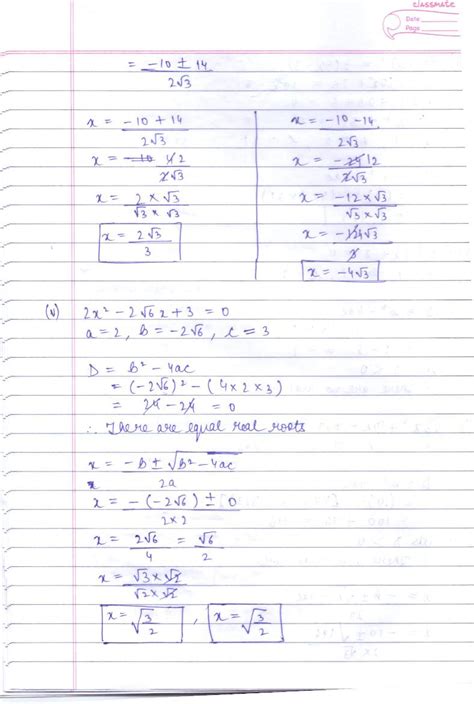 classmate
Date
Page
= -10 ± 14 / 2√3
x = -10 + 14 / 2√3
x = 4 2 / 2√3
x = 2 × √3 / √3 × √3
x = 2√3 / 3
x = -10 - 14 / 2√3
x = -24 12 / 2√3
x = -12 × √3 / √3 × √3
x = -12 4√3 / 3
x = -4√3
(v) 2x² - 2√6 x + 3 = 0
a = 2, b = -2√6, c = 3
D = b² - 4ac
= (-2√6)² - (4 × 2 × 3)
= 24 - 24 = 0
∴ There are equal real roots
x = -b ± √b² - 4ac / 2a
x = -(-2√6) ± 0 / 2 × 2
x = 2√6 / 4 = √6 / 2
x = √3 × √2 / √2 × √2
x = √3/2 , x = √3/2